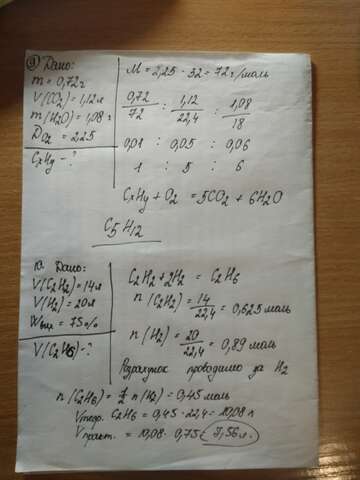 9) Дано:
m = 0,72 г
V(CO2) = 1,12 л
m(H2O) = 1,08 г
DO2 = 2,25
CxHy - ?
M = 2,25 · 32 = 72 г/моль
0,72/72 : 1,12/22,4 : 1,08/18
0,01 : 0,05 : 0,06
1 : 5 : 6
CxHy + O2 = 5CO2 + 6H2O
C5H12
10. Дано:
V(C2H2) = 14 л
V(H2) = 20 л
Wвих = 75%
V(C2H6) - ?
C2H2 + 2H2 = C2H6
n(C2H2) = 14/22,4 = 0,625 моль
n(H2) = 20/22,4 = 0,89 моль
Розрахунок проводимо за H2
n(C2H6) = 1/2 n(H2) = 0,45 моль
Vтеор. C2H6 = 0,45 · 22,4 = 10,08 л
Vпракт. = 10,08 · 0,75 = 7,56 л.